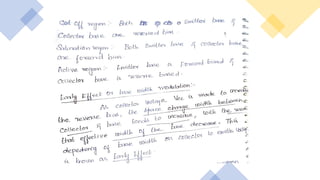 Cut off region:- Both emitter base &
Collector base are reversed bias.
Saturation region:- Both Emitter base & collector base
are forward bias.
Active region:- Emitter base is forward biased &
collector base is reverse biased.
Early Effect or base width modulation:-
As collector voltage Vcc is made to
the reverse bias, the space charge width between
collector & base tends to increase, with the
that effective width of the base decrease. This
dependency of base width on collector to
is known as Early Effect.